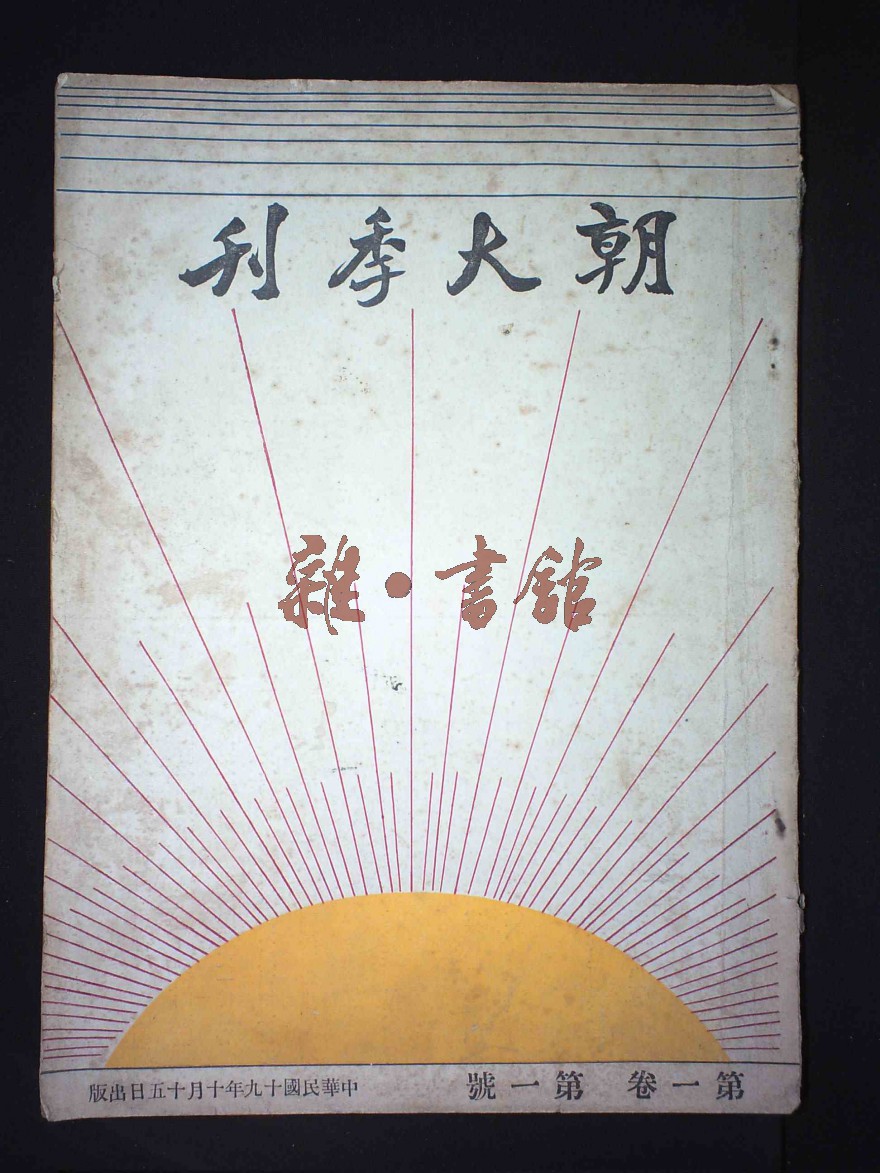 朝大季刊
雜·書館
第一卷 第一號
中華民國十九年十月十五日出版